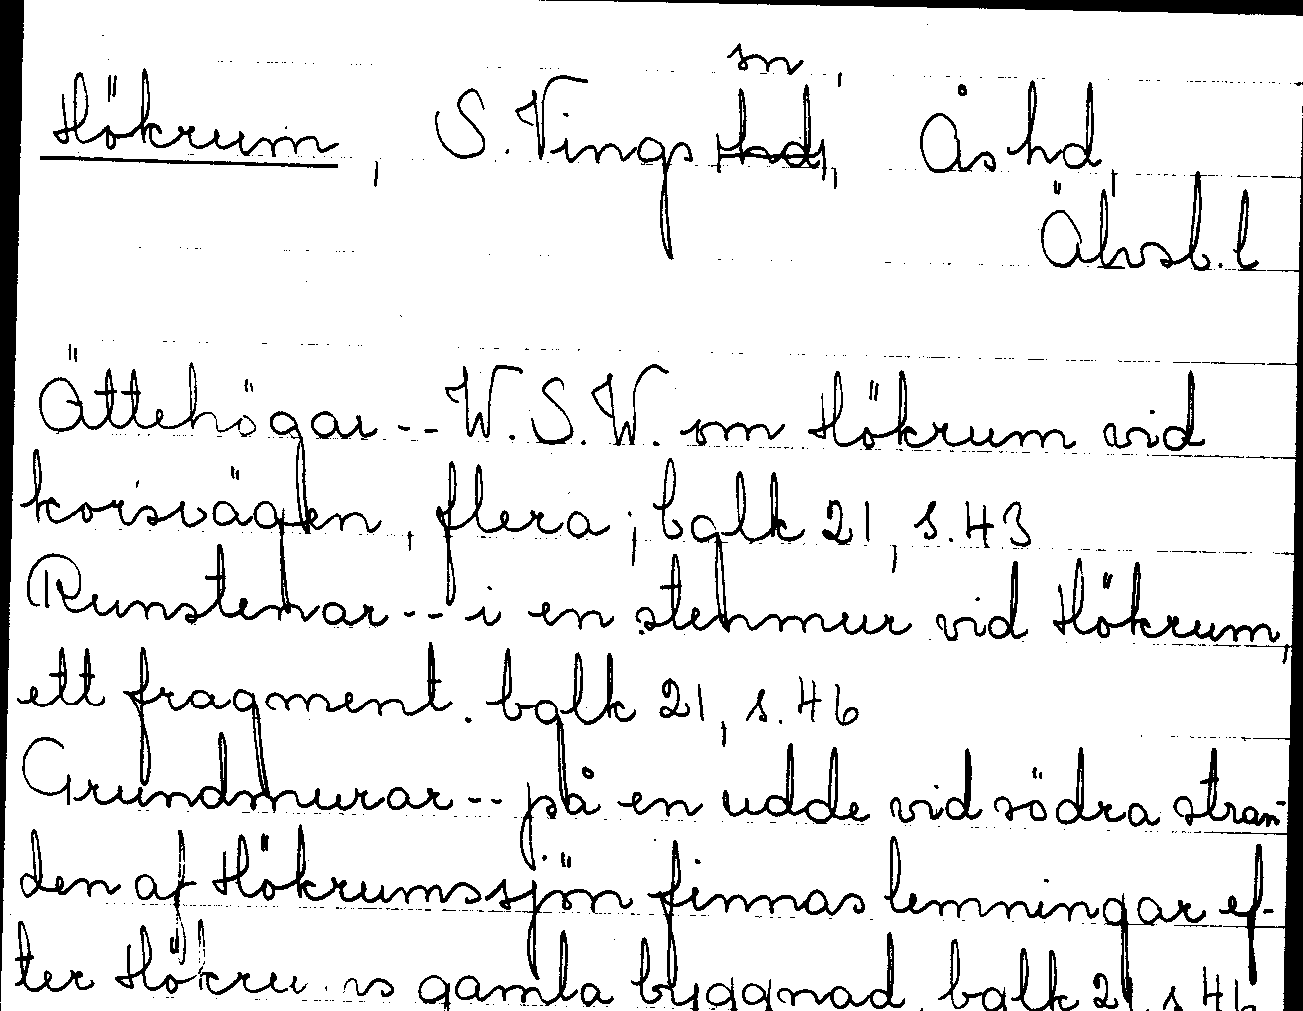 Hökrum, S. Vings sn, Ås hd,
Älvsb. l
Ättehögar -- W. S. W. om Hökrum vid
korsvägen, flera; balk 21, s. 43
Runstenar -- i en stenmur vid Hökrum,
ett fragment. balk 21, s. 46
Grundmurar -- på en udde vid södra stran-
den af Hökrumssjön finnas lemningar ef-
ter Hökrums gamla byggnad, balk 21, s. 46